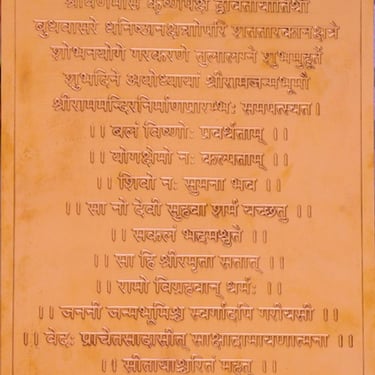 श्रावणमासे कृष्णपक्षे द्वितीयातिथौ
बुधवासरे धनिष्ठानक्षत्रोपरि शततारकानक्षत्रे
शोभनयोगे गरकरणे तुलालग्ने शुभमुहूर्ते
शुभदिने अयोध्यायां श्रीरामजन्मभूमौ
श्रीराममन्दिरनिर्माणप्रारम्भः समपत्स्यत।
।। बलं विष्णोः प्रवर्धताम् ।।
।। योगक्षेमो नः कल्पताम् ।।
।। शिवो नः सुमना भव ।।
।। सा नो देवी सुहवा शर्म यच्छतु ।।
।। सकलं भद्रमश्नुते ।।
।। सा हि श्रीरमृता सताम् ।।
।। रामो विग्रहवान् धर्मः ।।
।। जननी जन्मभूमिश्च स्वर्गादपि गरीयसी ।।
।। वेदः प्राचेतसादासीत् साक्षाद्रामायणात्मना ।।
।। सीतायाश्चरितं महत् ।।